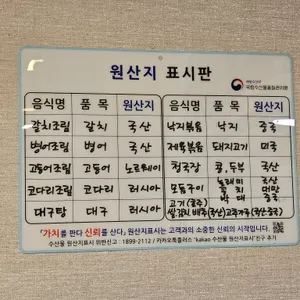 원산지 표시판
해양수산부
국립수산물품질관리원
음식명 품목 원산지 음식명 품목 원산지
갈치조림 갈치 국산 낙지볶음 낙지 중국
병어조림 병어 국산 제육볶음 돼지고기 미국
고등어조림 고등어 노르웨이 청국장 콩,두부 국산
코다리조림 코다리 러시아 모둠구이
대구탕 대구 러시아
"가치를 판다 신뢰를 산다", 원산지표시는 고객과의 소중한 신뢰의 시작입니다.
수산물 원산지표시 위반신고 : 1899-2112 / 카카오톡플러스 "kakao 수산물 원산지표시"친구 추가